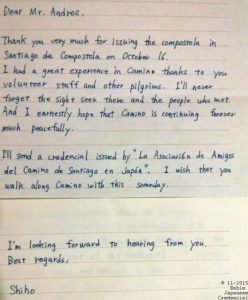 Dear Mr. Andres.
Thank you very much for issuing the compostela in
Santiago de Compostela on October 16.
I had a great experience in Camino thanks to you
volunteer staff and other pilgrims. I'll never
forget the sight seen there and the people who met.
And I earnestly hope that Camino is continuing forever
much peacefully.
I'll send a credencial issued by "La Asociación de Amigos
del Camino de Santiago en Japón". I wish that you
walk along Camino with this someday.
I'm looking forward to hearing from you.
Best regards,
Shiho
© 11/2015
Bable
Japanese
Credencial